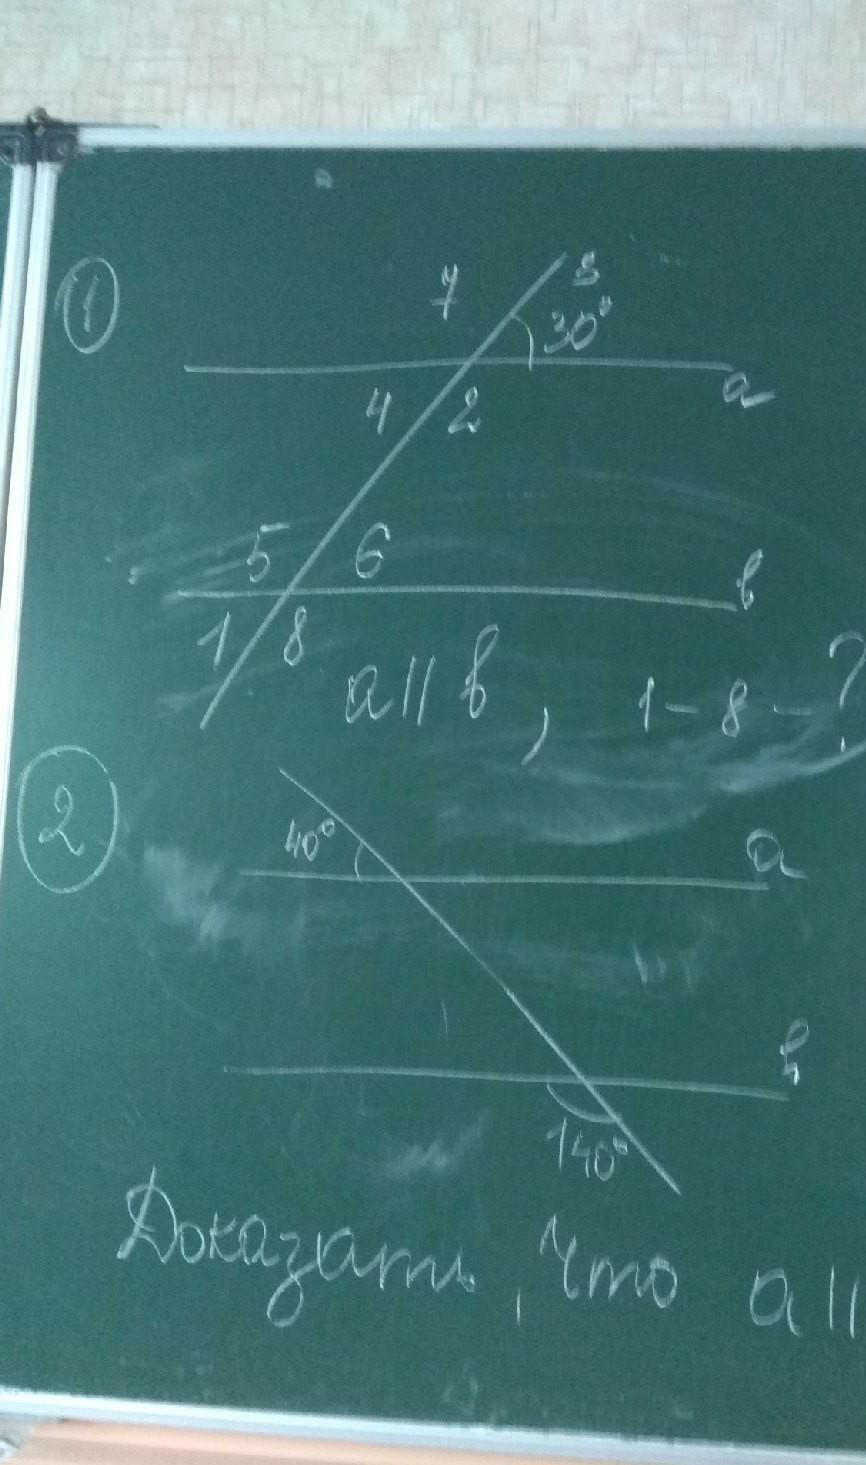 1
7 3
30°
a
4 2
5 6
в
1 8
a || в , 1 – 8 – ?
2
40°
a
в
140°
Доказать, что a ||